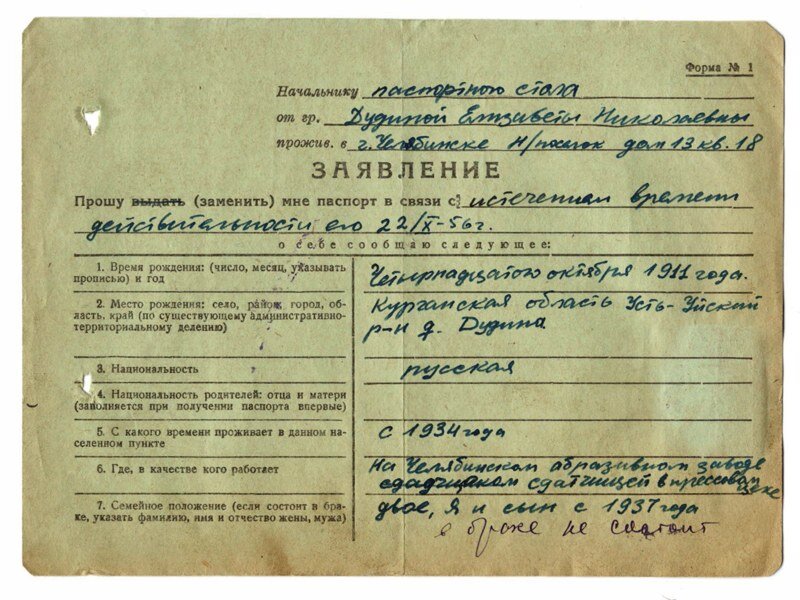 Форма № 1
Начальнику паспортного стола
от гр. Дудиной Елизаветы Николаевны
прожив. в г. Челябинске Н/поселок дом 13 кв. 18
ЗАЯВЛЕНИЕ
Прошу выдать (заменить) мне паспорт в связи с: истечением времени
действительности его 22/X-56г.
о себе сообщаю следующее:
1. Время рождения: (число, месяц, указывать
прописью) и год
Четырнадцатого октября 1911 года.
2. Место рождения: село, район, город, об-
ласть, край (по существующему административно-
территориальному делению)
Курганская область Усть-Уйский
р-н д. Дудина
3. Национальность
русская
4. Национальность родителей: отца и матери
(заполняется при получении паспорта впервые)
5. С какого времени проживает в данном на-
селенном пункте
с 1934 года
6. Где, в качестве кого работает
На Челябинском абразивном заводе
сдатчицей в прессовом
цехе
7. Семейное положение (если состоит в бра-
ке, указать фамилию, имя и отчество жены, мужа)
двое, я и сын с 1937 года
в браке не состоит